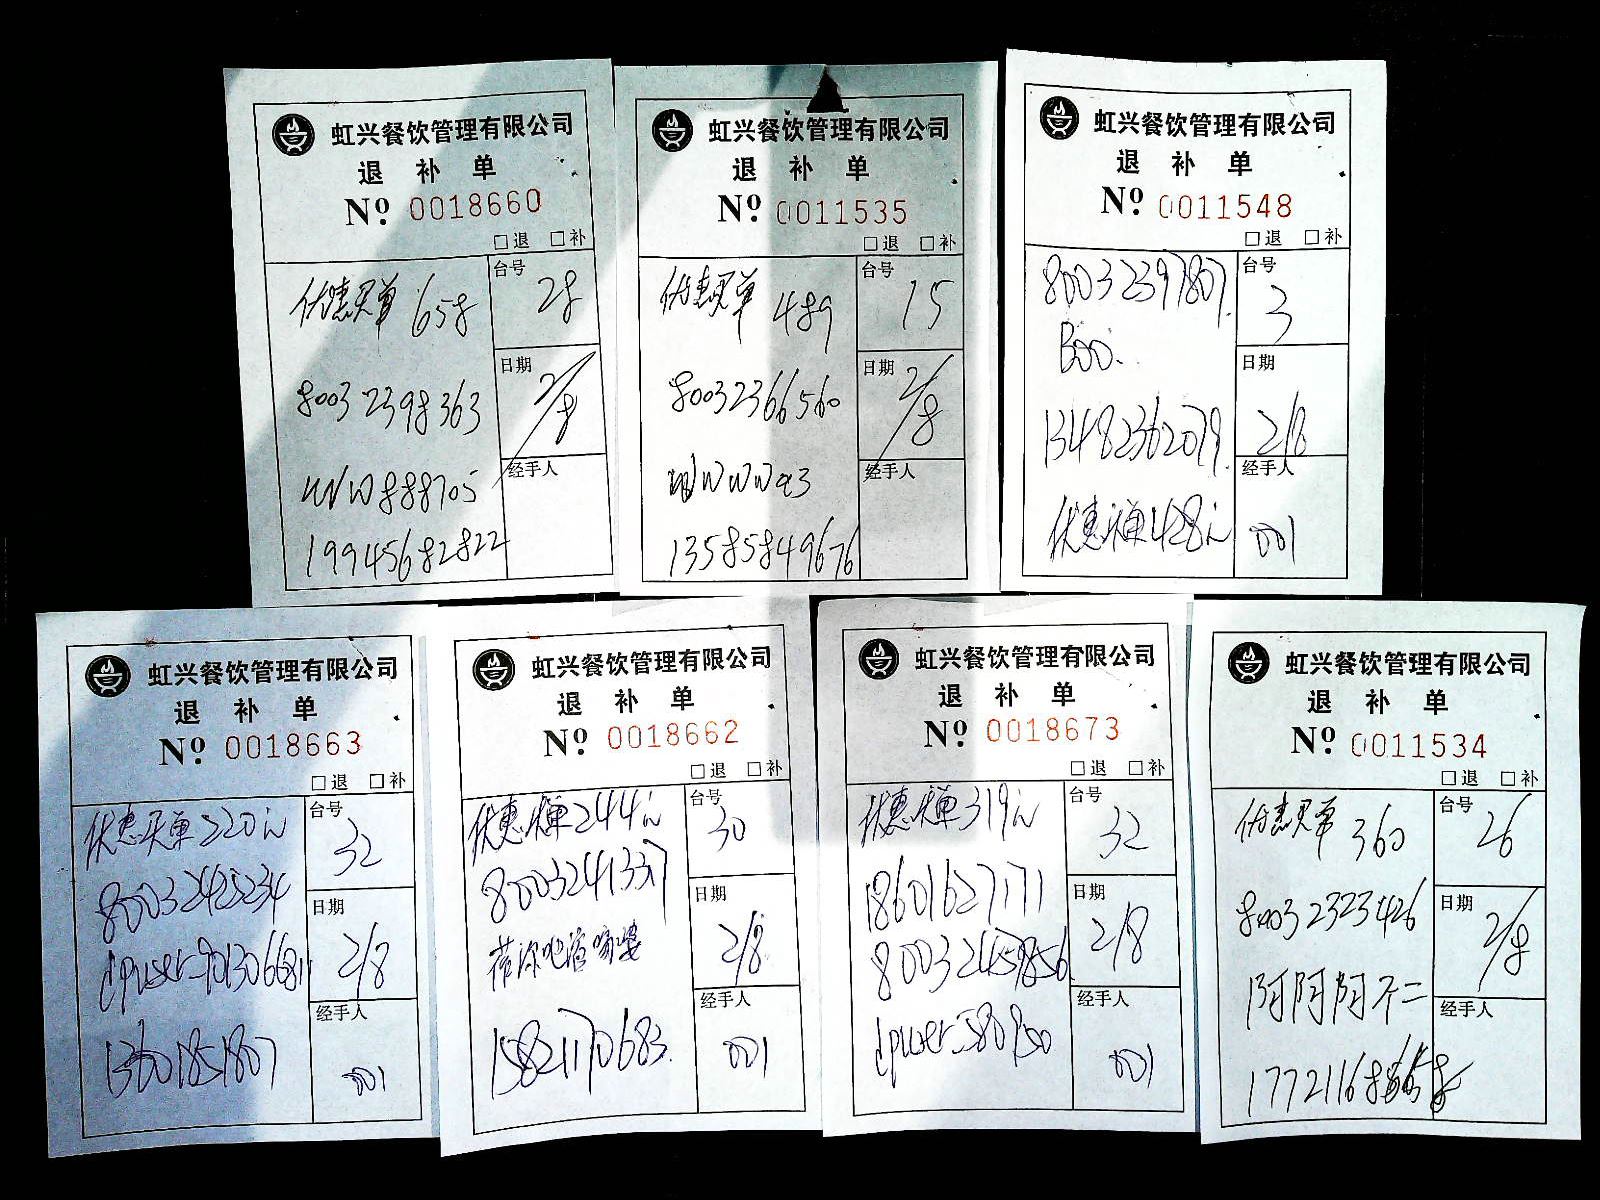 虹兴餐饮管理有限公司
退 补 单
№ 0018660
□退 □补
优惠买单 658
台号 28
80032398363
日期 2/8
WW888705
经手人
19945682822
虹兴餐饮管理有限公司
退 补 单
№ 0011535
□退 □补
优惠买单 489
台号 15
80032366560
日期 2/8
经手人
13585849676
虹兴餐饮管理有限公司
退 补 单
№ 0011548
□退 □补
80032397807.
台号 3
Boo..
日期 2/8
13482362079.
经手人 001
优惠买单428元
虹兴餐饮管理有限公司
退 补 单
№ 0018663
□退 □补
优惠买单220元
台号 32
80032425234
日期 2/8
经手人 001
虹兴餐饮管理有限公司
退 补 单
№ 0018662
□退 □补
优惠买单244元
台号 30
80032413377
日期 2/8
15821170683.
经手人 001
虹兴餐饮管理有限公司
退 补 单
№ 0018673
□退 □补
优惠买单319元
台号 32
18601627171
80032459856
日期 2/8
经手人 001
虹兴餐饮管理有限公司
退 补 单
№ 0011534
□退 □补
优惠买单 360
台号 26
80032323426
日期 2/8
阿阿阿不二
经手人